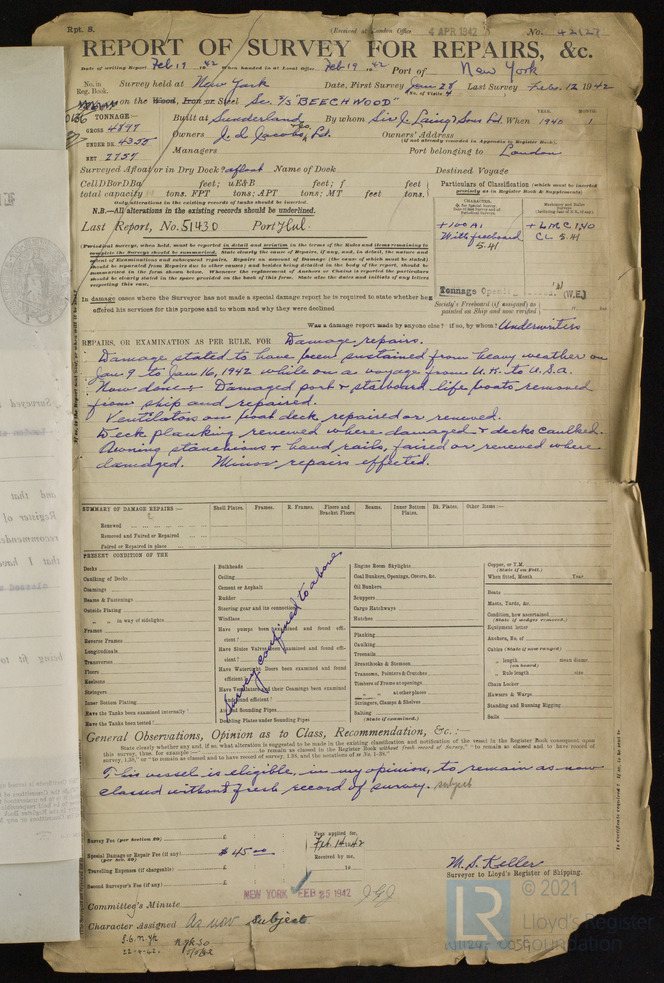 Rpt. 8.
(Received at London Office 4 APR 1942
No. 42127
REPORT OF SURVEY FOR REPAIRS, &c.
Date of writing Report Feb 19 1942 When handed in at Local Office Feb 19 1942 Port of New York
No. in Reg. Book.
Survey held at New York Date, First Survey Jan 28 Last Survey Feb. 12 1942
No. of Visits 4
on the Wood, Iron or Steel Sc. S/S "BEECHWOOD"
TONNAGE
GROSS 4897
UNDER DK. 4350
NET 2757
Built at Sunderland By whom Sir J. Laing & Sons Ltd. When 1940 1
YEAR. MONTH.
Owners Owners' Address
(if not already recorded in Appendix to Register Book).
Managers Port belonging to London
Surveyed Afloat or in Dry Dock? afloat Name of Dock Destined Voyage
CellDBorDBa feet; uE&B feet; f feet
total capacity tons. FPT tons; APT tons; MT feet tons.
Only alterations in the existing records of tanks should be inserted.
N.B.—All alterations in the existing records should be underlined.
Last Report, No. 51430 Port Hul.
Particulars of Classification (which must be inserted precisely as in Register Book & Supplements)
+100A1
With freeboard
5.41
+LMC 1,40
CL 5.41
Tonnage Open
(W.E.)
Society's Freeboard (if assigned) as painted on Ship and now verified
(Periodical Surveys, when held, must be reported in detail and seriatim in the terms of the Rules and items remaining to complete the Surveys should be summarized. State clearly the cause of Repairs, if any, and, in detail, the nature and extent of Examinations and subsequent repairs. Repairs on account of Damage (the cause of which must be stated) should be separated from Repairs due to other causes; and besides being detailed in the body of the report, should be summarized in the form shown below. Whenever the replacement of Anchors or Chains is reported the particulars should be clearly stated in the space provided on the back of this form. State also the dates and initials of any letters respecting this case.
In damage cases where the Surveyor has not made a special damage report he is required to state whether he offered his services for this purpose and to whom and why they were declined
Was a damage report made by anyone else? if so, by whom? Underwriters
REPAIRS, OR EXAMINATION AS PER RULE, FOR Damage repairs.
Damage stated to have been sustained from heavy weather on
Jan 9 to Jan 16, 1942 while on a voyage from U.K. to U.S.A.
Now done: Damaged port & starboard life boats removed
from ship and repaired.
Ventilators on boat deck repaired or renewed.
Deck planking renewed where damaged & decks caulked.
Awning stanchions & hand rails, faired or renewed where
damaged. Minor repairs effected.
SUMMARY OF DAMAGE REPAIRS:—
Shell Plates. Frames. R. Frames. Floors and Bracket Floors Beams. Inner Bottom Plates. Dk. Plates. Other Items:—
Renewed
Removed and Faired or Repaired
Faired or Repaired in place
PRESENT CONDITION OF THE
Decks
Caulking of Decks
Coamings
Beams & Fastenings
Outside Plating
" " in way of sidelights
Frames
Reverse Frames
Longitudinals
Transverses
Floors
Keelsons
Stringers
Inner Bottom Plating
Have the Tanks been examined internally?
Have the Tanks been tested?
Bulkheads
Ceiling
Cement or Asphalt
Rudder
Steering gear and its connections
Windlass
Have pumps been examined and found efficient?
Have Sluice Valves been examined and found efficient?
Have Watertight Doors been examined and found efficient?
Have Ventilators and their Coamings been examined and found efficient?
Air and Sounding Pipes
Doubling Plates under Sounding Pipes
Survey confined to above
Engine Room Skylights
Coal Bunkers, Openings, Covers, &c.
Oil Bunkers
Scuppers
Cargo Hatchways
Hatches
Planking
Caulking
Treenails
Breasthooks & Stemson
Transoms, Pointers & Crutches
Timbers of Frame at openings
" " at other places
Stringers, Clamps & Shelves
Salting
(State if examined.)
Copper, or Y.M.
(State if on Felt.)
When fitted, Month Year
Boats
Masts, Yards, &c.
Condition, how ascertained
(State if wedges removed.)
Equipment letter
Anchors, No. of
Cables (State if now ranged)
" length mean diamr.
(on board)
" Rule length size
Chain Locker
Hawsers & Warps
Standing and Running Rigging
Sails
General Observations, Opinion as to Class, Recommendation, &c.:—
State clearly whether any and, if so, what alteration is suggested to be made in the existing classification and notification of the vessel in the Register Book consequent upon
This vessel is eligible, in my opinion, to remain as now
classed without fresh record of survey. subject
Survey Fee (per Section 29) £
Special Damage or Repair Fee (if any) (per Sec. 29) $45.00
Travelling Expenses (if chargeable) £
Second Surveyor's Fee (if any) £
Fees applied for,
Received by me,
M. S. Keller
Surveyor to Lloyd's Register of Shipping.
NEW YORK FEB 25 1942
Committee's Minute
Character Assigned As now Subject
© 2021
LR
Lloyd's Register
Foundation